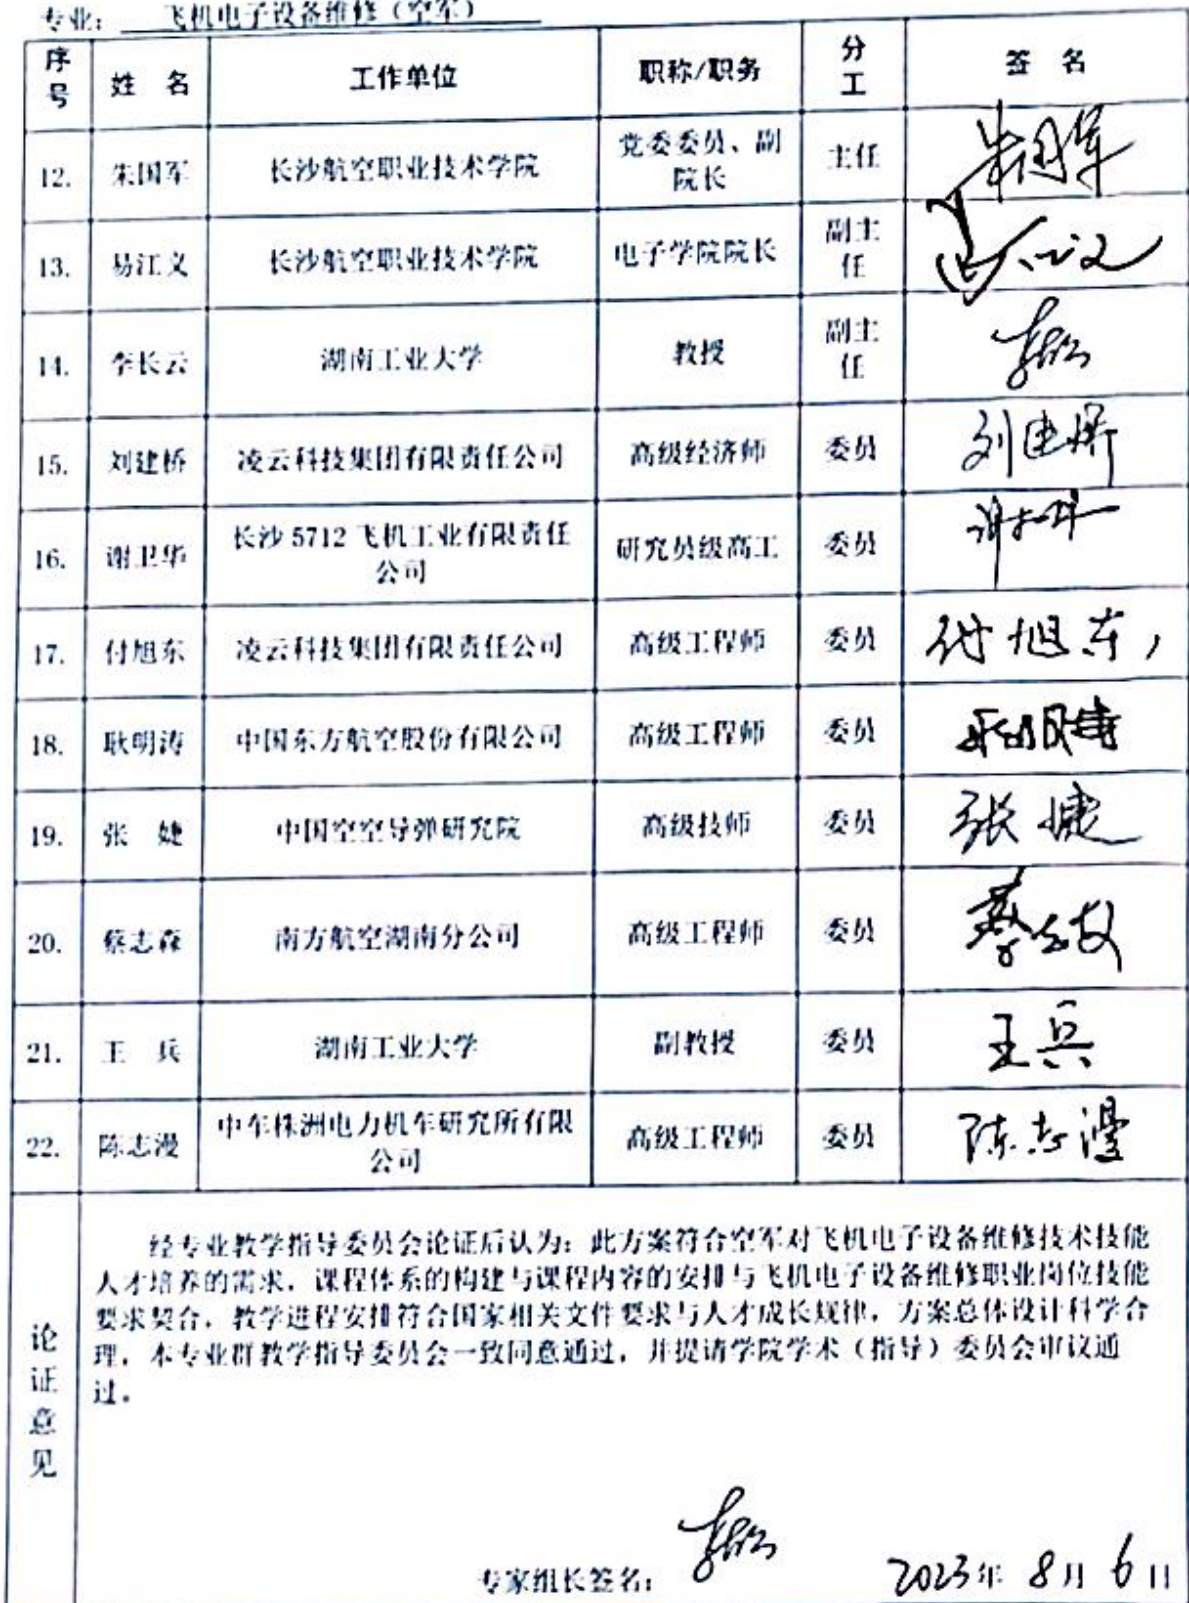 专业： 飞机电子设备维修（空军）
序号 姓 名 工作单位 职称/职务 分工 签 名
12. 朱国军 长沙航空职业技术学院 党委委员、副院长 主任 朱国军
13. 易江义 长沙航空职业技术学院 电子学院院长 副主任
14. 李长云 湖南工业大学 教授 副主任
15. 刘建桥 凌云科技集团有限责任公司 高级经济师 委员 刘建桥
16. 谢卫华 长沙5712飞机工业有限责任公司 研究员级高工 委员 谢卫华
17. 付旭东 凌云科技集团有限责任公司 高级工程师 委员 付旭东
18. 耿明涛 中国东方航空股份有限公司 高级工程师 委员 耿明涛
19. 张 婕 中国空空导弹研究院 高级技师 委员 张婕
20. 蔡志森 南方航空湖南分公司 高级工程师 委员
21. 王 兵 湖南工业大学 副教授 委员 王兵
22. 陈志漫 中车株洲电力机车研究所有限公司 高级工程师 委员 陈志漫
论证意见
经专业教学指导委员会论证后认为：此方案符合空军对飞机电子设备维修技术技能
人才培养的需求，课程体系的构建与课程内容的安排与飞机电子设备维修职业岗位技能
要求契合，教学进程安排符合国家相关文件要求与人才成长规律，方案总体设计科学合
理，本专业群教学指导委员会一致同意通过，并提请学院学术（指导）委员会审议通
过。
专家组长签名： 2023年 8月 6日